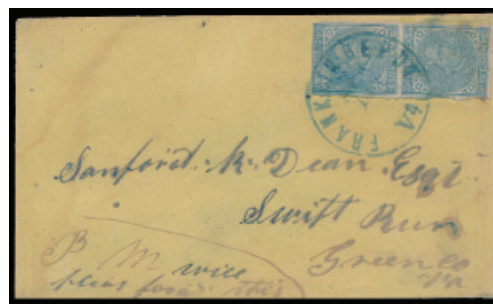 FRANK VA
Sanford. R. Dean Esqr
Swift Run
Green co
Va
P M will
pleas this